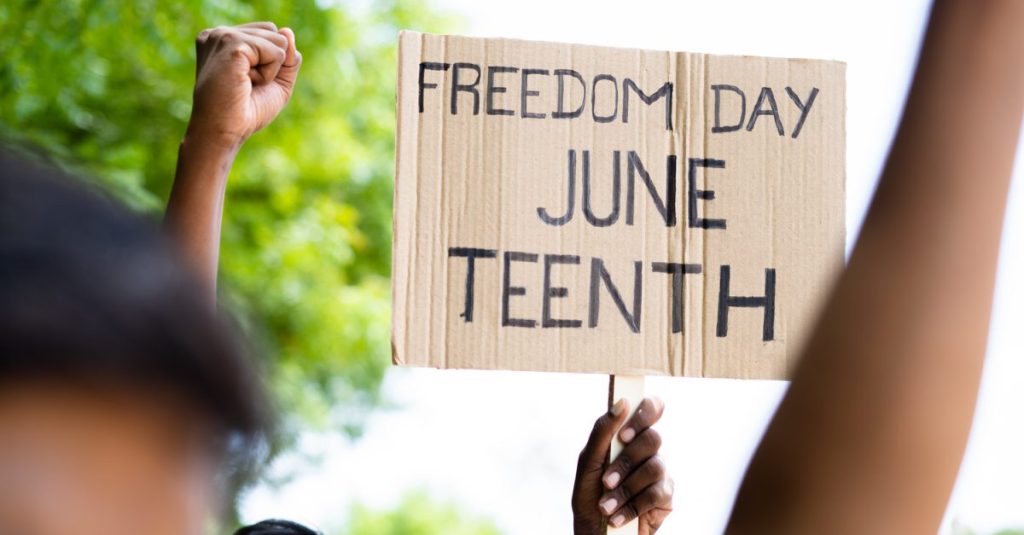 FREEDOM DAY
JUNE
TEENTH